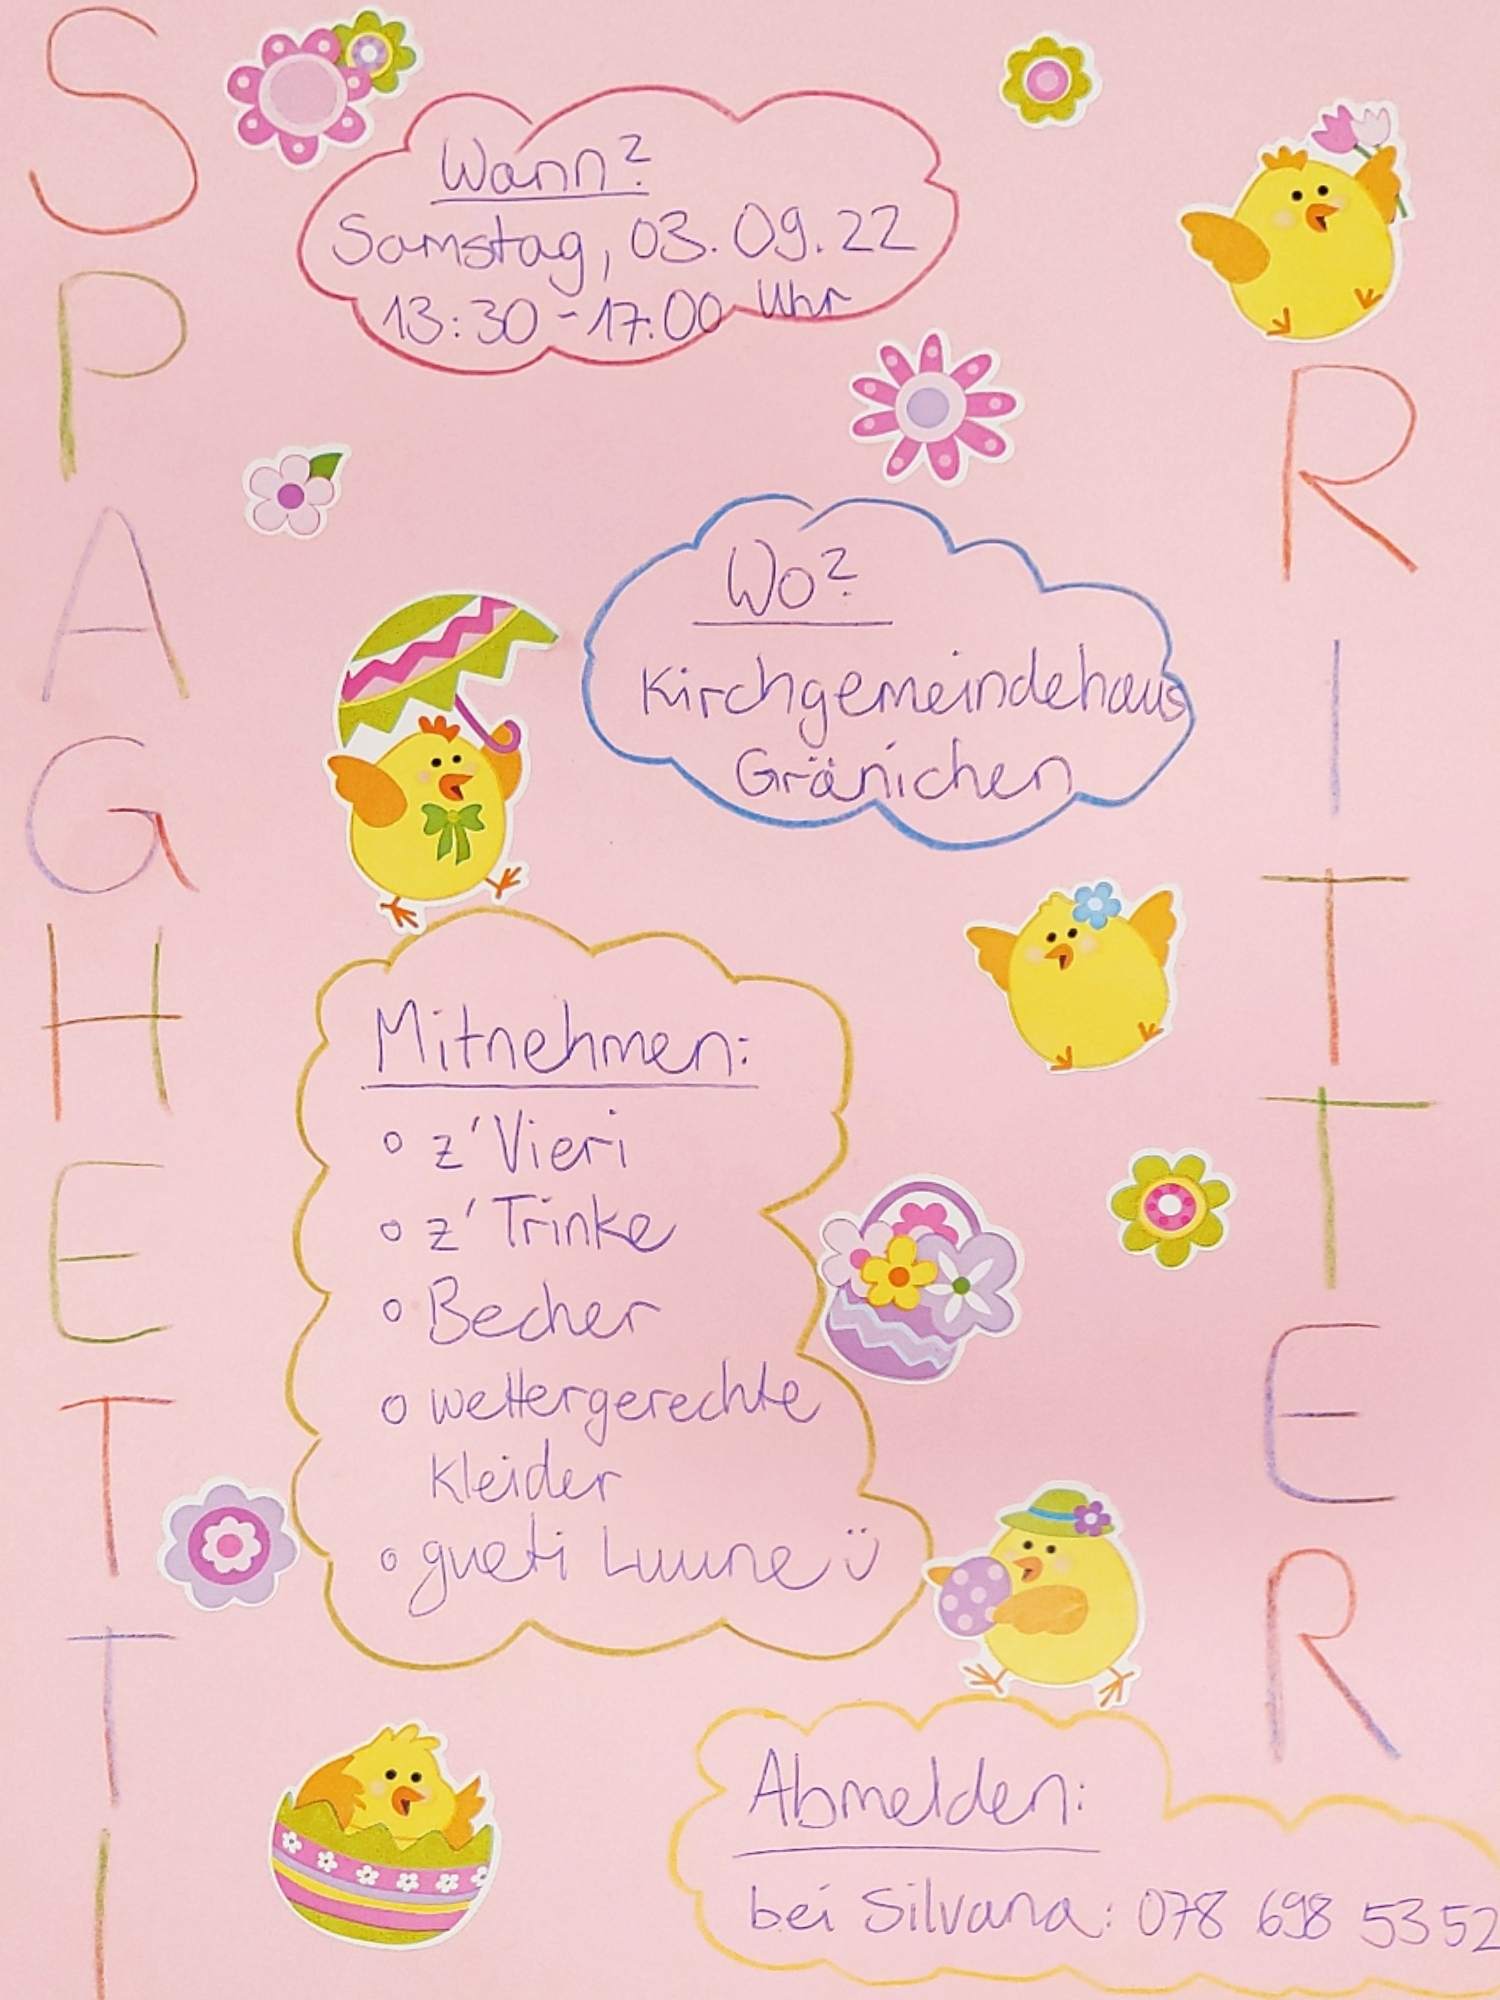 SPAGHETTI
RITTER
Wann?
Samstag, 03.09.22
13:30-17.00 Uhr
Wo?
Kirchgemeindehaus
Gränichen
Mitnehmen:
o z'Vieri
o z'Trinke
o Becher
o wettergerechte
Kleider
o gueti Luune ü
Abmelden:
bei Silvana: 078 698 53 52